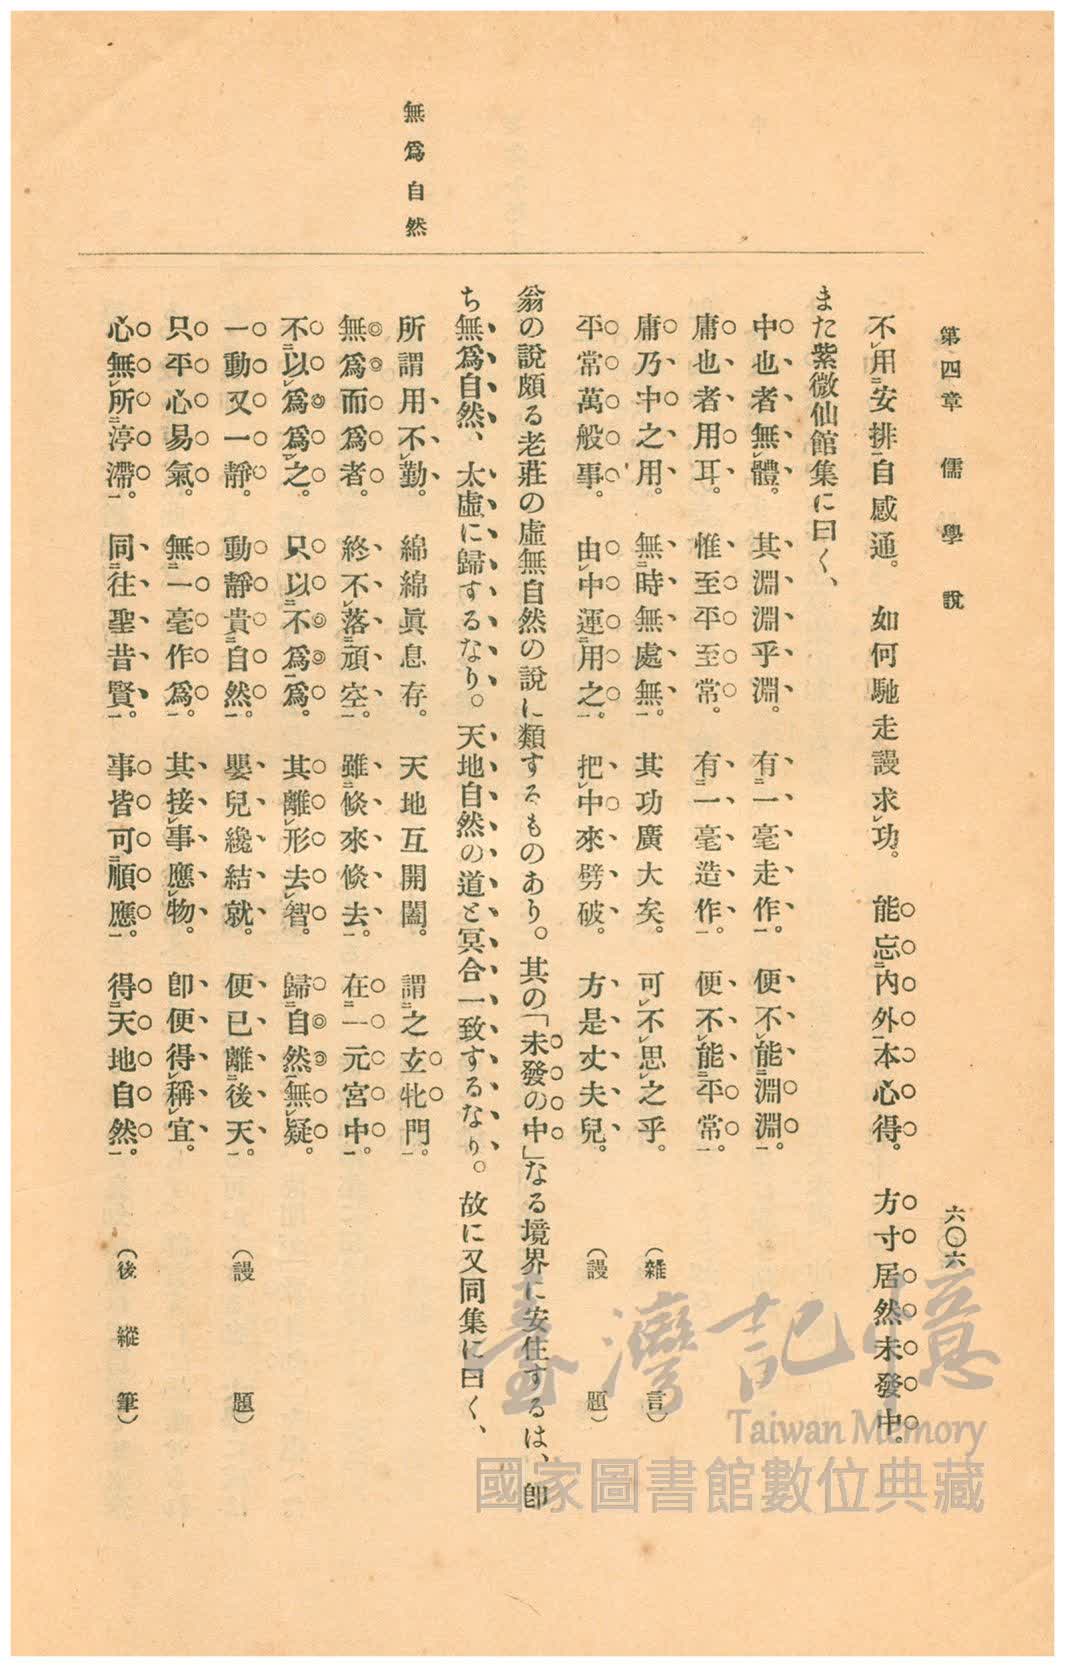 第四章 儒學說
六〇六
無爲自然
不用安排自感通。 如何馳走謾求功。 能忘內外本心得。 方寸居然未發中。
また紫微仙館集に曰く、
中也者無體。 其淵淵乎淵。 有一毫走作。 便不能淵淵。
庸也者用耳。 惟至平至常。 有一毫造作。 便不能平常。
庸乃中之用。 無時無處無。 其功廣大矣。 可不思之乎。 (雜言)
平常萬般事。 由中運用之。 把中來劈破。 方是丈夫兒。 (謾題)
翁の說頗る老莊の虛無自然の說に類するものあり。其の「未發の中」なる境界に安住するは、卽
ち無爲自然、太虛に歸するなり。天地自然の道と冥合一致するなり。故に又同集に曰く、
所謂用不勤。 綿綿眞息存。 天地互開闔。 謂之玄牝門。
無爲而爲者。 終不落頑空。 雖倐來倐去。 在一元宮中。
不以爲爲之。 只以不爲爲。 其離形去智。 歸自然無疑。
一動又一靜。 動靜貴自然。 嬰兒纔結就。 便已離後天。 (謾題)
只平心易氣。 無一毫作爲。 其接事應物。 卽便得稱宜。
心無所渟滯。 同往聖昔賢。 事皆可順應。 得天地自然。 (後縱筆)
臺灣記憶
Taiwan Memory
國家圖書館數位典藏